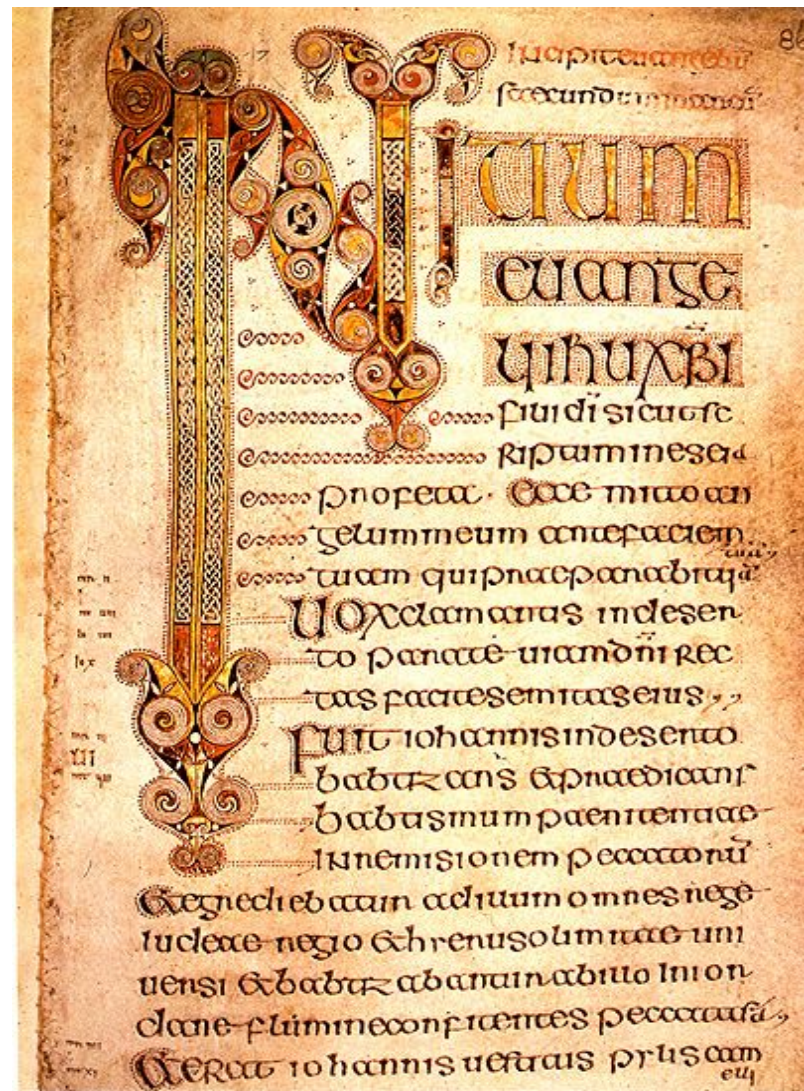 86
Incipit euangeliū
secundum marcū
INITIUM
EUANGE
LII IHU XPI
FILII DI SICUT SC
RIPTUM IN ESEIA
profeta · Ecce mitto an
gelum meum ante faciem
tuam qui praeparabit uiā
tuā
Uox clamantis in deser
to parate uiam dni rec
tas facite semitas eius
Fuit iohannis in deserto
babtizans & praedicans
babtismum paenitentiae
in remisionem peccatorū
& egrediebatur ad illum omnes regi
iudeae regio & hierusolimitae uni
uersi & babtizabantur ab illo in ior
dane flumine confitentes peccata sa
& erat iohannis uestitus pylis cam
eli